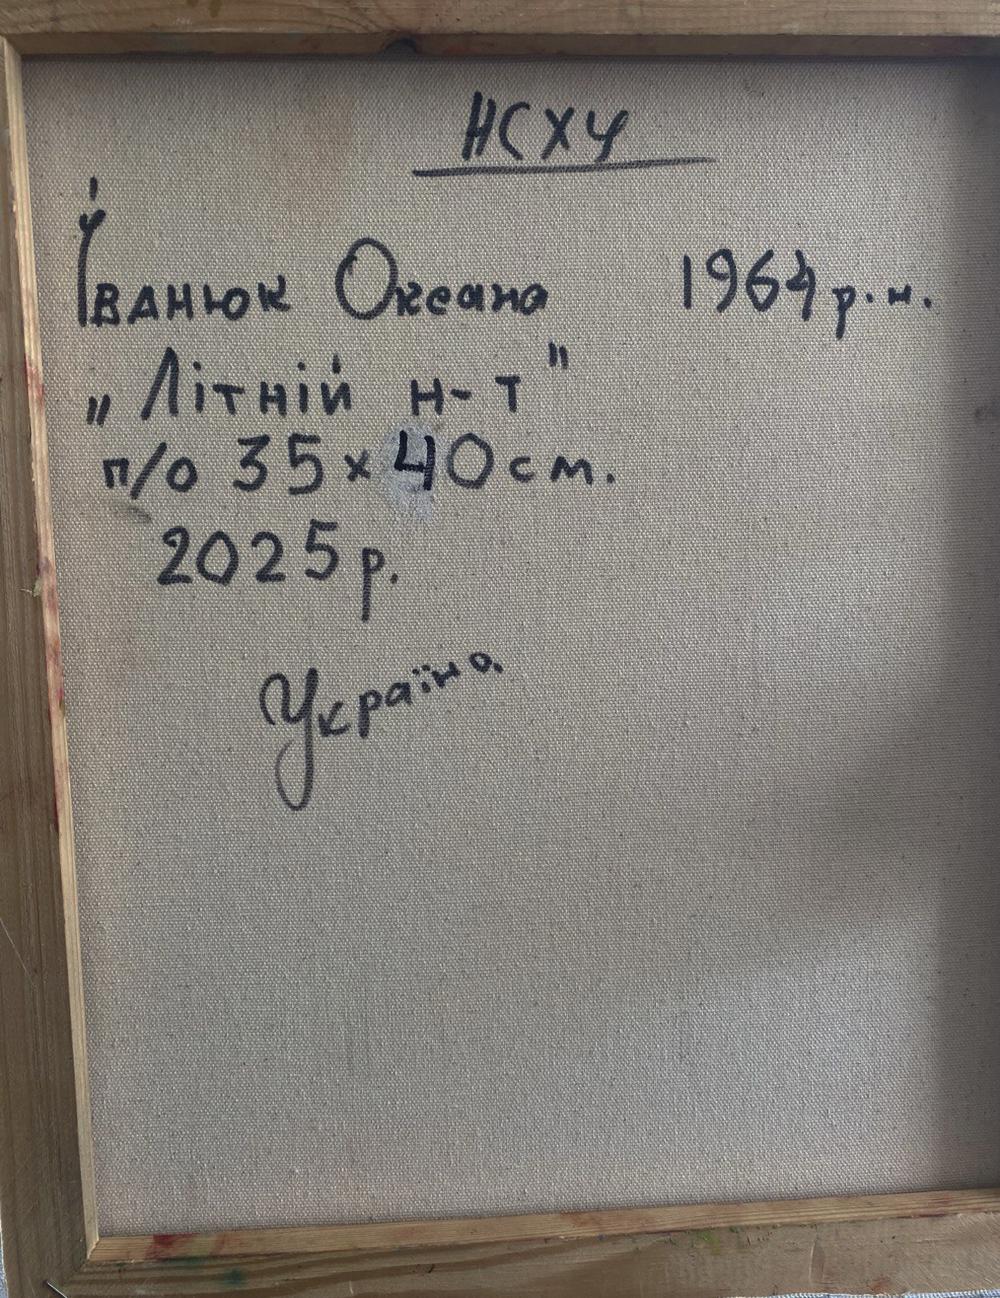 НСХУ
Іванюк Оксана 1964 р.н.
„Літній н-т"
п/о 35x40 см.
2025 р.
Україна.